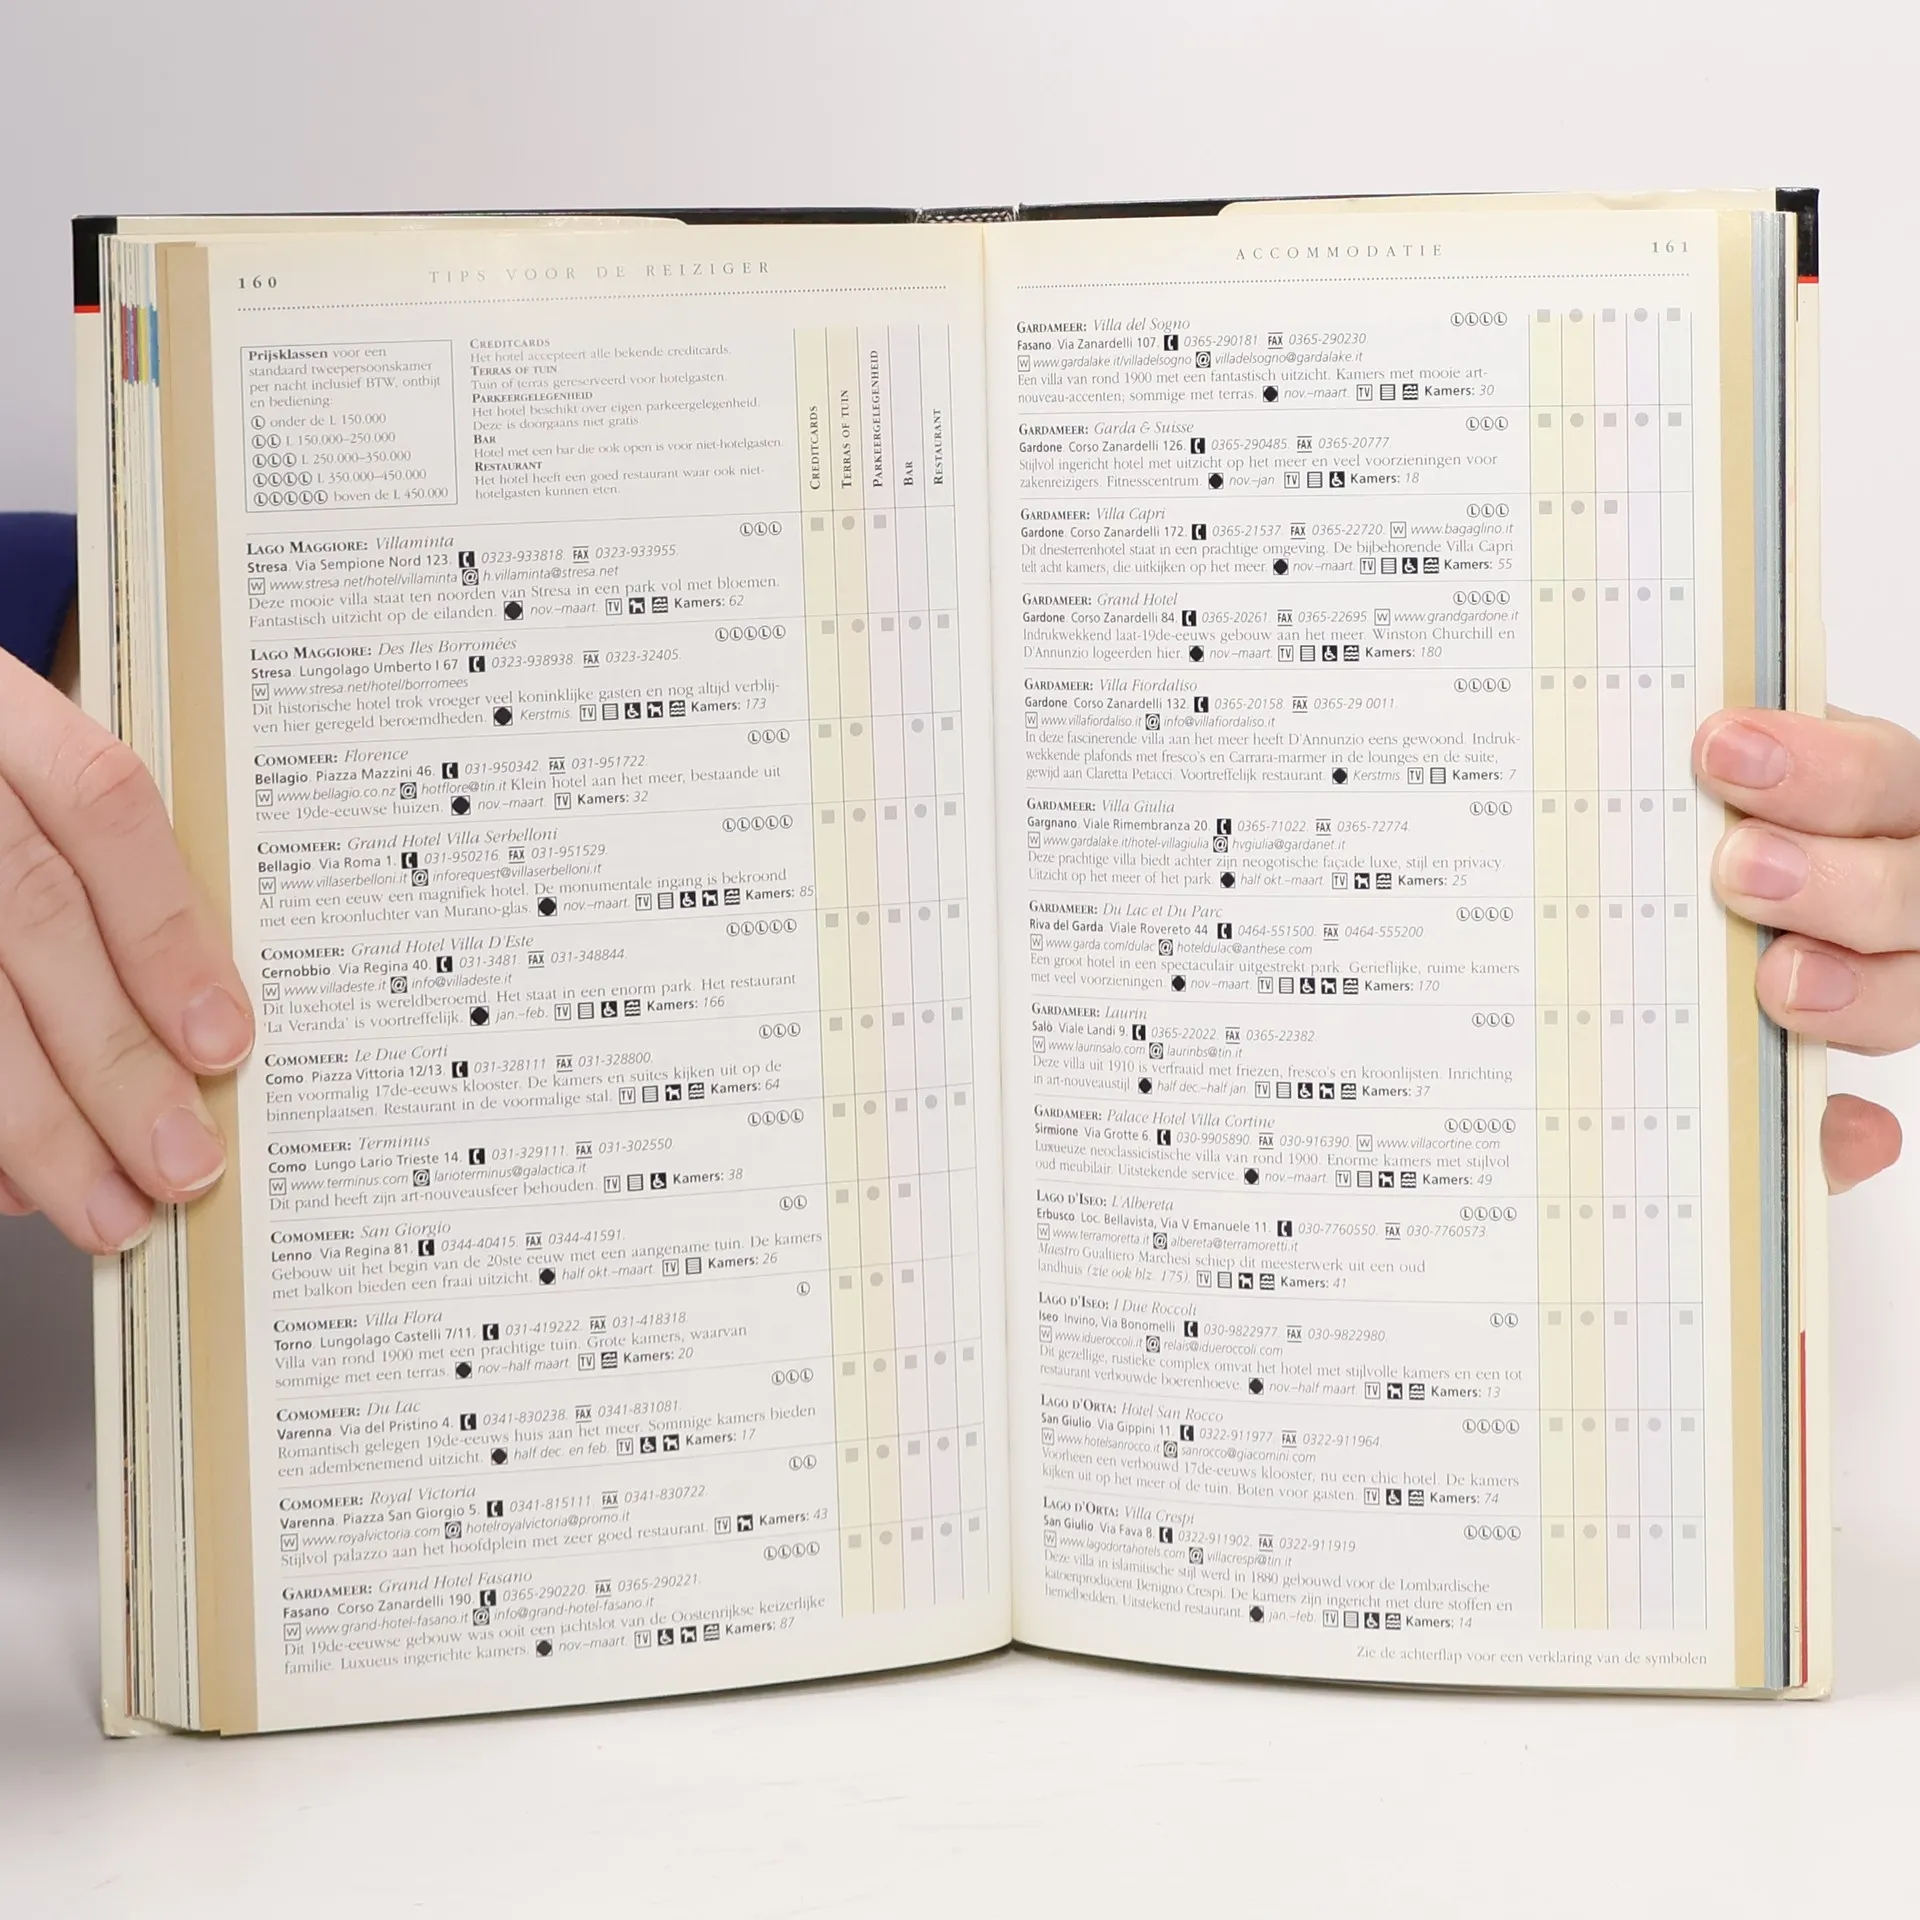 160
TIPS VOOR DE REIZIGER
Prijsklassen voor een
standaard tweepersoonskamer
per nacht inclusief BTW, ontbijt
en bediening:
Ⓛ onder de L 150.000
ⓁⓁ L 150.000–250.000
ⓁⓁⓁ L 250.000–350.000
ⓁⓁⓁⓁ L 350.000–450.000
ⓁⓁⓁⓁⓁ boven de L 450.000
CREDITCARDS
Het hotel accepteert alle bekende creditcards.
TERRAS OF TUIN
Tuin of terras gereserveerd voor hotelgasten.
PARKEERGELEGENHEID
Het hotel beschikt over eigen parkeergelegenheid.
Deze is doorgaans niet gratis.
BAR
Hotel met een bar die ook open is voor niet-hotelgasten.
RESTAURANT
Het hotel heeft een goed restaurant waar ook niet-
hotelgasten kunnen eten.
CREDITCARDS
TERRAS OF TUIN
PARKEERGELEGENHEID
BAR
RESTAURANT
LAGO MAGGIORE: Villaminta ⓁⓁⓁ
Stresa. Via Sempione Nord 123. 0323-933818. FAX 0323-933955.
W www.stresa.net/hotel/villaminta @ h.villaminta@stresa.net
Deze mooie villa staat ten noorden van Stresa in een park vol met bloemen.
Fantastisch uitzicht op de eilanden. nov.–maart. TV Kamers: 62
LAGO MAGGIORE: Des Iles Borromées ⓁⓁⓁⓁⓁ
Stresa. Lungolago Umberto I 67 0323-938938. FAX 0323-32405.
W www.stresa.net/hotel/borromees
Dit historische hotel trok vroeger veel koninklijke gasten en nog altijd verblij-
ven hier geregeld beroemdheden. Kerstmis. TV Kamers: 173
COMOMEER: Florence ⓁⓁⓁ
Bellagio. Piazza Mazzini 46. 031-950342. FAX 031-951722.
W www.bellagio.co.nz @ hotflore@tin.it Klein hotel aan het meer, bestaande uit
twee 19de-eeuwse huizen. nov.–maart. TV Kamers: 32
COMOMEER: Grand Hotel Villa Serbelloni ⓁⓁⓁⓁⓁ
Bellagio. Via Roma 1. 031-950216. FAX 031-951529.
W www.villaserbelloni.it @ inforequest@villaserbelloni.it
Al ruim een eeuw een magnifiek hotel. De monumentale ingang is bekroond
met een kroonluchter van Murano-glas. nov.–maart. TV Kamers: 85
COMOMEER: Grand Hotel Villa D'Este ⓁⓁⓁⓁⓁ
Cernobbio. Via Regina 40. 031-3481. FAX 031-348844.
W www.villadeste.it @ info@villadeste.it
Dit luxehotel is wereldberoemd. Het staat in een enorm park. Het restaurant
'La Veranda' is voortreffelijk. jan.–feb. TV Kamers: 166
COMOMEER: Le Due Corti ⓁⓁⓁ
Como. Piazza Vittoria 12/13. 031-328111 FAX 031-328800.
Een voormalig 17de-eeuws klooster. De kamers en suites kijken uit op de
binnenplaatsen. Restaurant in de voormalige stal. TV Kamers: 64
COMOMEER: Terminus ⓁⓁⓁⓁ
Como. Lungo Lario Trieste 14. 031-329111. FAX 031-302550.
W www.terminus.com @ larioterminus@galactica.it
Dit pand heeft zijn art-nouveausfeer behouden. TV Kamers: 38
COMOMEER: San Giorgio ⓁⓁ
Lenno. Via Regina 81. 0344-40415. FAX 0344-41591.
Gebouw uit het begin van de 20ste eeuw met een aangename tuin. De kamers
met balkon bieden een fraai uitzicht. half okt.–maart. TV Kamers: 26
COMOMEER: Villa Flora Ⓛ
Torno. Lungolago Castelli 7/11. 031-419222. FAX 031-418318.
Villa van rond 1900 met een prachtige tuin. Grote kamers, waarvan
sommige met een terras. nov–half maart. TV Kamers: 20
COMOMEER: Du Lac ⓁⓁⓁ
Varenna. Via del Pristino 4. 0341-830238. FAX 0341-831081.
Romantisch gelegen 19de-eeuws huis aan het meer. Sommige kamers bieden
een adembenemend uitzicht. half dec. en feb. TV Kamers: 17
COMOMEER: Royal Victoria ⓁⓁ
Varenna. Piazza San Giorgio 5. 0341-815111. FAX 0341-830722.
W www.royalvictoria.com @ hotelroyalvictoria@promo.it
Stijlvol palazzo aan het hoofdplein met zeer goed restaurant. TV Kamers: 43
GARDAMEER: Grand Hotel Fasano ⓁⓁⓁⓁ
Fasano. Corso Zanardelli 190. 0365-290220. FAX 0365-290221.
W www.grand-hotel-fasano.it @ info@grand-hotel-fasano.it
Dit 19de-eeuwse gebouw was ooit een jachtslot van de Oostenrijkse keizerlijke
familie. Luxueus ingerichte kamers. nov–maart. TV Kamers: 87
ACCOMMODATIE
161
GARDAMEER: Villa del Sogno ⓁⓁⓁⓁ
Fasano. Via Zanardelli 107. 0365-290181 FAX 0365-290230.
W www.gardalake.it/villadelsogno @ villadelsogno@gardalake.it
Een villa van rond 1900 met een fantastisch uitzicht. Kamers met mooie art-
nouveau-accenten; sommige met terras. nov.–maart. TV Kamers: 30
GARDAMEER: Garda & Suisse ⓁⓁⓁ
Gardone. Corso Zanardelli 126. 0365-290485. FAX 0365-20777.
Stijlvol ingericht hotel met uitzicht op het meer en veel voorzieningen voor
zakenreizigers. Fitnesscentrum. nov–jan TV Kamers: 18
GARDAMEER: Villa Capri ⓁⓁⓁ
Gardone. Corso Zanardelli 172. 0365-21537. FAX 0365-22720. W www.bagaglino.it
Dit driesterrenhotel staat in een prachtige omgeving. De bijbehorende Villa Capri
telt acht kamers, die uitkijken op het meer. nov.–maart. TV Kamers: 55
GARDAMEER: Grand Hotel ⓁⓁⓁⓁ
Gardone. Corso Zanardelli 84. 0365-20261. FAX 0365-22695. W www.grandgardone.it
Indrukwekkend laat-19de-eeuws gebouw aan het meer. Winston Churchill en
D'Annunzio logeerden hier. nov.–maart. TV Kamers: 180
GARDAMEER: Villa Fiordaliso ⓁⓁⓁⓁ
Gardone. Corso Zanardelli 132. 0365-20158. FAX 0365-29 0011.
W www.villafiordaliso.it @ info@villafiordaliso.it
In deze fascinerende villa aan het meer heeft D'Annunzio eens gewoond. Indruk-
wekkende plafonds met fresco's en Carrara-marmer in de lounges en de suite,
gewijd aan Claretta Petacci. Voortreffelijk restaurant. Kerstmis. TV Kamers: 7
GARDAMEER: Villa Giulia ⓁⓁⓁ
Gargnano. Viale Rimembranza 20. 0365-71022. FAX 0365-72774.
W www.gardalake.it/hotel-villagiulia @ hvgiulia@gardanet.it
Deze prachtige villa biedt achter zijn neogotische façade luxe, stijl en privacy.
Uitzicht op het meer of het park. half okt.–maart. TV Kamers: 25
GARDAMEER: Du Lac et Du Parc ⓁⓁⓁⓁ
Riva del Garda. Viale Rovereto 44 0464-551500. FAX 0464-555200.
W www.garda.com/dulac @ hoteldulac@anthese.com
Een groot hotel in een spectaculair uitgestrekt park. Gerieflijke, ruime kamers
met veel voorzieningen. nov–maart. TV Kamers: 170
GARDAMEER: Laurin ⓁⓁⓁ
Salò. Viale Landi 9. 0365-22022. FAX 0365-22382.
W www.laurinsalo.com @ laurinbs@tin.it
Deze villa uit 1910 is verfraaid met friezen, fresco's en kroonlijsten. Inrichting
in art-nouveaustijl. half dec.–half jan. TV Kamers: 37
GARDAMEER: Palace Hotel Villa Cortine ⓁⓁⓁⓁⓁ
Sirmione. Via Grotte 6. 030-9905890. FAX 030-916390. W www.villacortine.com
Luxueuze neoclassicistische villa van rond 1900. Enorme kamers met stijlvol
oud meubilair. Uitstekende service. nov.–maart. TV Kamers: 49
LAGO D'ISEO: L'Albereta ⓁⓁⓁⓁ
Erbusco. Loc. Bellavista, Via V Emanuele 11. 030-7760550. FAX 030-7760573.
W www.terramoretta.it @ albereta@terramoretti.it
Maestro Gualtiero Marchesi schiep dit meesterwerk uit een oud
landhuis (zie ook blz. 175). TV Kamers: 41
LAGO D'ISEO: I Due Roccoli ⓁⓁ
Iseo. Invino, Via Bonomelli 030-9822977. FAX 030-9822980.
W www.idueroccoli.it @ relais@idueroccoli.com
Dit gezellige, rustieke complex omvat het hotel met stijlvolle kamers en een tot
restaurant verbouwde boerenhoeve. nov.–half maart. TV Kamers: 13
LAGO D'ORTA: Hotel San Rocco ⓁⓁⓁⓁ
San Giulio. Via Gippini 11. 0322-911977. FAX 0322-911964.
W www.hotelsanrocco.it @ sanrocco@giacomini.com
Voorheen een verbouwd 17de-eeuws klooster, nu een chic hotel. De kamers
kijken uit op het meer of de tuin. Boten voor gasten. TV Kamers: 74
LAGO D'ORTA: Villa Crespi ⓁⓁⓁⓁ
San Giulio. Via Fava 8. 0322-911902. FAX 0322-911919.
W www.lagodortahotels.com @ villacrespi@tin.it
Deze villa in islamitische stijl werd in 1880 gebouwd voor de Lombardische
katoenproducent Benigno Crespi. De kamers zijn ingericht met dure stoffen en
hemelbedden. Uitstekend restaurant. jan.–feb. TV Kamers: 14
Zie de achterflap voor een verklaring van de symbolen